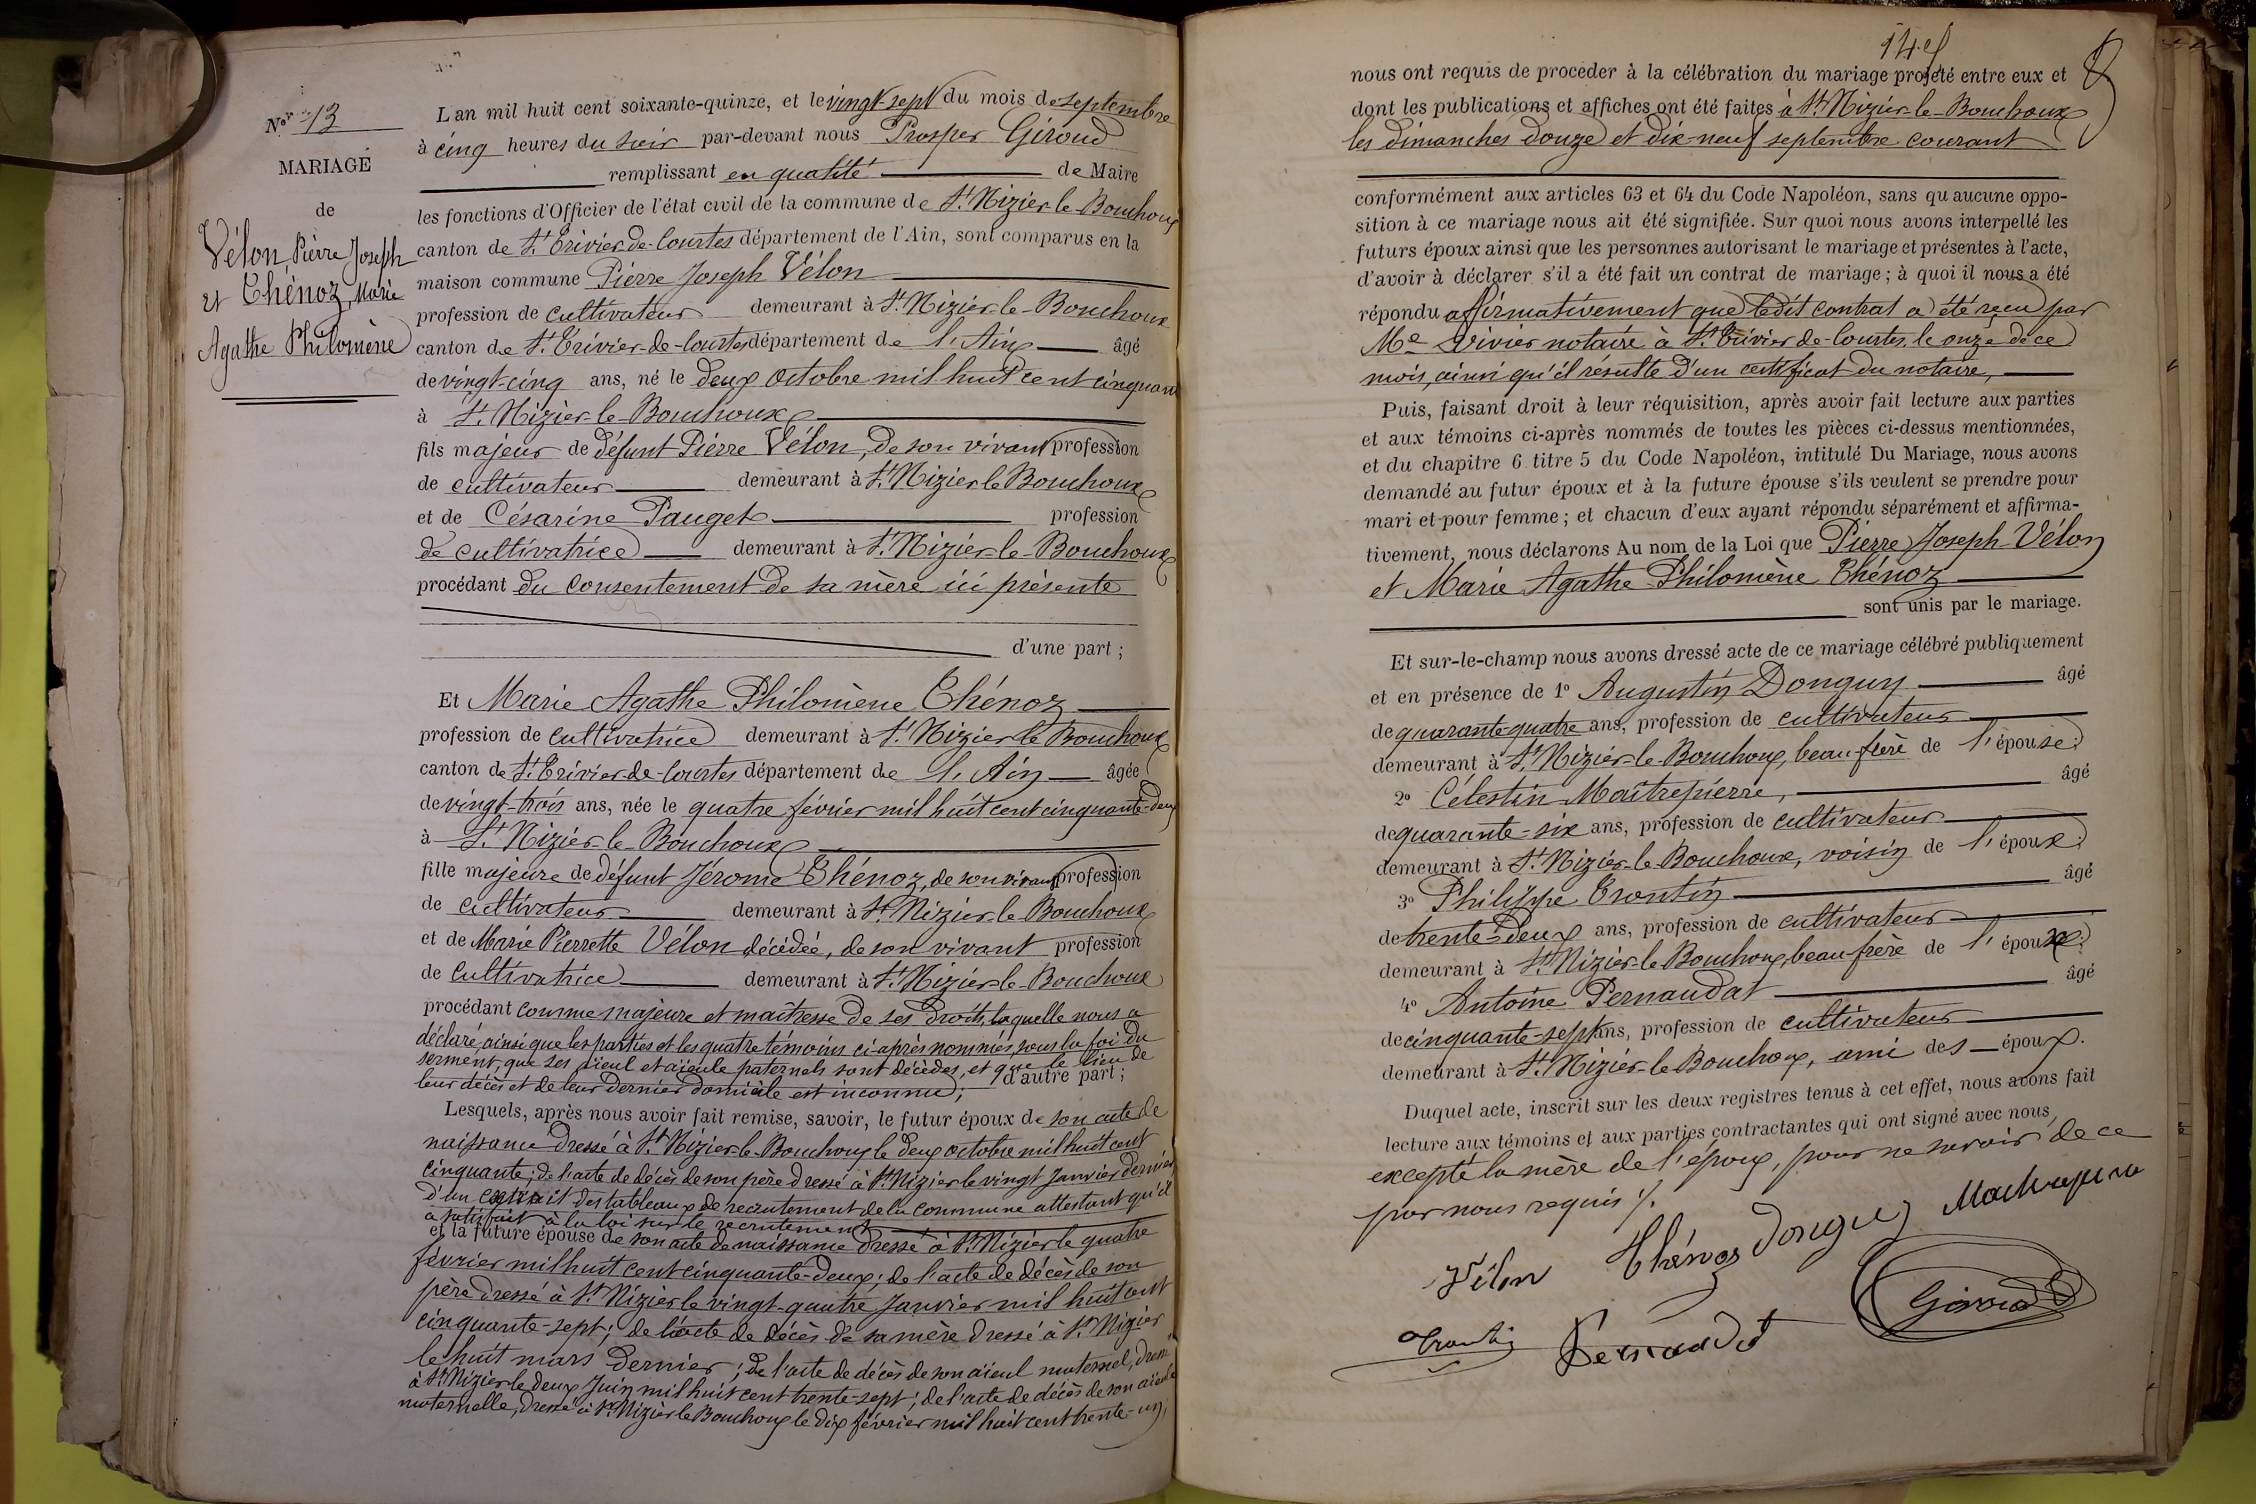 Nº 13
MARIAGE
de
Vélon Pierre Joseph
et Chénoz, Marie
Agathe Philomène
L'an mil huit cent soixante-quinze, et le vingt-sept du mois de septembre
à cinq heures du soir par-devant nous Prosper Giroud
remplissant en qualité de Maire
les fonctions d'Officier de l'état civil de la commune de St. Nizier-le-Bouchoux
canton de St. Trivier-de-Courtes département de l'Ain, sont comparus en la
maison commune Pierre Joseph Vélon
profession de cultivateur demeurant à St. Nizier-le-Bouchoux
canton de St. Trivier-de-Courtes département de l'Ain âgé
de vingt-cinq ans, né le deux Octobre mil huit cent cinquante
à St. Nizier-le-Bouchoux
fils majeur de défunt Pierre Vélon, de son vivant profession
de cultivateur demeurant à St. Nizier le Bouchoux
et de Césarine Pauget profession
de cultivatrice demeurant à St. Nizier-le-Bouchoux
procédant du consentement de sa mère ici présente
d'une part ;
Et Marie Agathe Philomène Chénoz
profession de cultivatrice demeurant à St. Nizier le Bouchoux
canton de St. Trivier-de-Courtes département de l'Ain âgée
de vingt-trois ans, née le quatre février mil huit cent cinquante-deux
à St. Nizier-le-Bouchoux
fille majeure de défunt Jérome Chénoz, de son vivant profession
de cultivateur demeurant à St. Nizier-le-Bouchoux
et de Marie Pierrette Vélon décédée, de son vivant profession
de cultivatrice demeurant à St. Nizier-le-Bouchoux
procédant comme majeure et maîtresse de ses droits, laquelle nous a
déclaré, ainsi que les parties et les quatre témoins ci-après nommés, sous la foi du
serment, que ses aïeul et aïeule paternels sont décédés, et que le lieu de
leur décès et de leur dernier domicile est inconnu ; d'autre part ;
Lesquels, après nous avoir fait remise, savoir, le futur époux de son acte de
naissance dressé à St. Nizier-le-Bouchoux le deux octobre mil huit cent
cinquante ; de l'acte de décès de son père dressé à St. Nizier le vingt Janvier dernier
d'un extrait des tableaux de recrutement de la commune attestant qu'il
a satisfait à la loi sur le recrutement
et la future épouse de son acte de naissance dressé à St. Nizier le quatre
février mil huit cent cinquante-deux ; de l'acte de décès de son
père dressé à St. Nizier le vingt-quatre Janvier mil huit cent
cinquante-sept ; de l'acte de décès de sa mère dressé à St. Nizier
le huit mars dernier ; de l'acte de décès de son aïeul maternel, dressé
à St. Nizier le deux Juin mil huit cent trente-sept ; de l'acte de décès de son aïeule
maternelle, dressé à St. Nizier le Bouchoux le dix février mil huit cent trente-un,
nous ont requis de procéder à la célébration du mariage projeté entre eux et
dont les publications et affiches ont été faites à St. Nizier-le-Bouchoux
les dimanches douze et dix-neuf septembre courant
conformément aux articles 63 et 64 du Code Napoléon, sans qu'aucune oppo-
sition à ce mariage nous ait été signifiée. Sur quoi nous avons interpellé les
futurs époux ainsi que les personnes autorisant le mariage et présentes à l'acte,
d'avoir à déclarer s'il a été fait un contrat de mariage ; à quoi il nous a été
répondu affirmativement que ledit contrat a été reçu par
Me Vivier notaire à St. Trivier-de-Courtes, le onze de ce
mois, ainsi qu'il résulte d'un certificat du notaire,
Puis, faisant droit à leur réquisition, après avoir fait lecture aux parties
et aux témoins ci-après nommés de toutes les pièces ci-dessus mentionnées,
et du chapitre 6 titre 5 du Code Napoléon, intitulé Du Mariage, nous avons
demandé au futur époux et à la future épouse s'ils veulent se prendre pour
mari et pour femme ; et chacun d'eux ayant répondu séparément et affirma-
tivement, nous déclarons Au nom de la Loi que Pierre Joseph Vélon
et Marie Agathe Philomène Chénoz
sont unis par le mariage.
Et sur-le-champ nous avons dressé acte de ce mariage célébré publiquement
et en présence de 1º Augustin Donguy âgé
de quarante-quatre ans, profession de cultivateur
demeurant à St. Nizier-le-Bouchoux, beau-frère de l'épouse ;
2º Célestin Maîtrepierre, âgé
de quarante-six ans, profession de cultivateur
demeurant à St. Nizier-le-Bouchoux, voisin de l'époux ;
3º Philippe Trontin âgé
de trente-deux ans, profession de cultivateur
demeurant à St. Nizier-le-Bouchoux, beau-frère de l'épouse ;
4º Antoine Pernaudat âgé
de cinquante-sept ans, profession de cultivateur
demeurant à St. Nizier-le-Bouchoux, ami des époux.
Duquel acte, inscrit sur les deux registres tenus à cet effet, nous avons fait
lecture aux témoins et aux parties contractantes qui ont signé avec nous,
excepté la mère de l'époux, pour ne savoir de ce
par nous requis ./.
Vélon Chénoz Donguy
Trontin Pernaudat Giroud